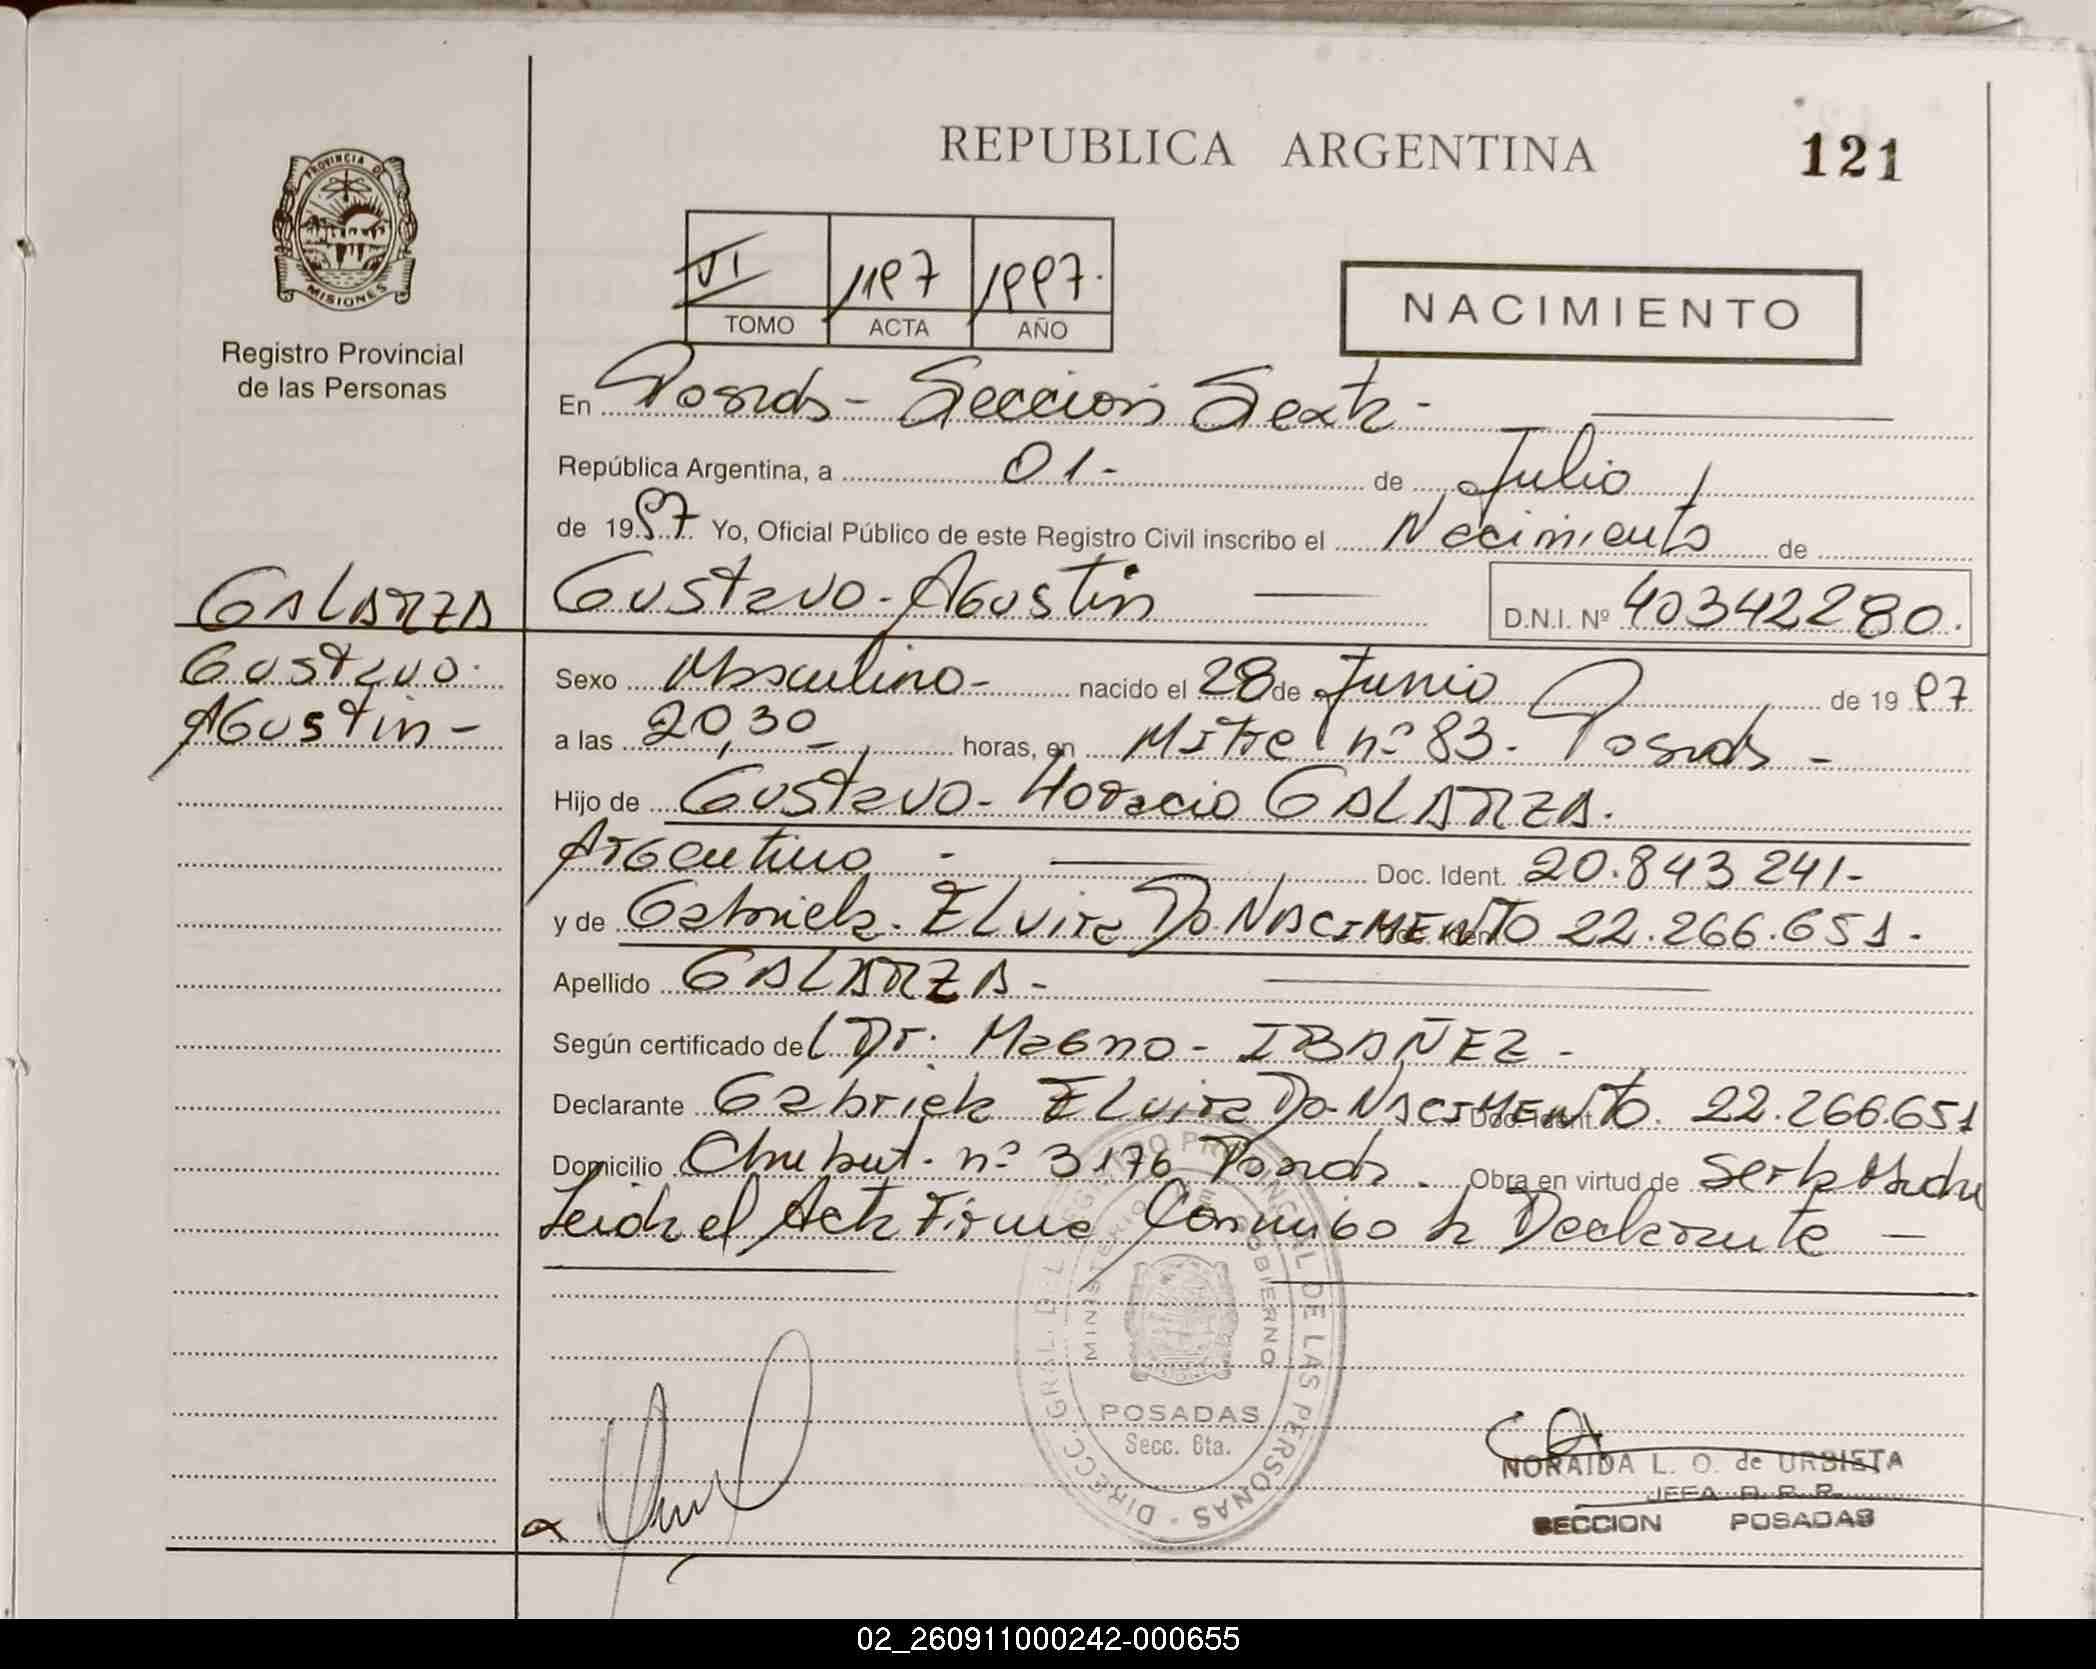 REPUBLICA ARGENTINA
121
PROVINCIA DE
MISIONES
Registro Provincial
de las Personas
VI 1197 1997.
TOMO ACTA AÑO
NACIMIENTO
En Posadas - Seccion Sexta -
República Argentina, a 01- de Julio
de 1997 Yo, Oficial Público de este Registro Civil inscribo el Nacimiento de
GALARZA
Gustavo.
Agustin -
Gustavo - Agustin D.N.I. Nº 40342280.
Sexo Masculino - nacido el 28 de Junio de 19 97
a las 20,30 horas, en Mitre nº 83. Posadas -
Hijo de Gustavo - Horacio GALARZA.
Argentino - Doc. Ident. 20.843 241-
y de Gabriela. Elvira Do NASCIMENTO 22.266.651.
Apellido GALARZA -
Según certificado del Dr. Magno - IBAÑEZ -
Declarante Gabriela Elvira Do NASCIMENTO. 22.266.651
Domicilio Chubut. nº 3176 Posadas. Obra en virtud de ser la Madre
Leida el Acta Firma Conmigo la Declarante -
DIRECC. GRAL. DEL REGISTRO PROVINCIAL DE LAS PERSONAS
MINISTERIO GOBIERNO
POSADAS
Secc. 6ta.
NORAIDA L. O. de URBIETA
JEFA R. P. P.
SECCION POSADAS
02_260911000242-000655